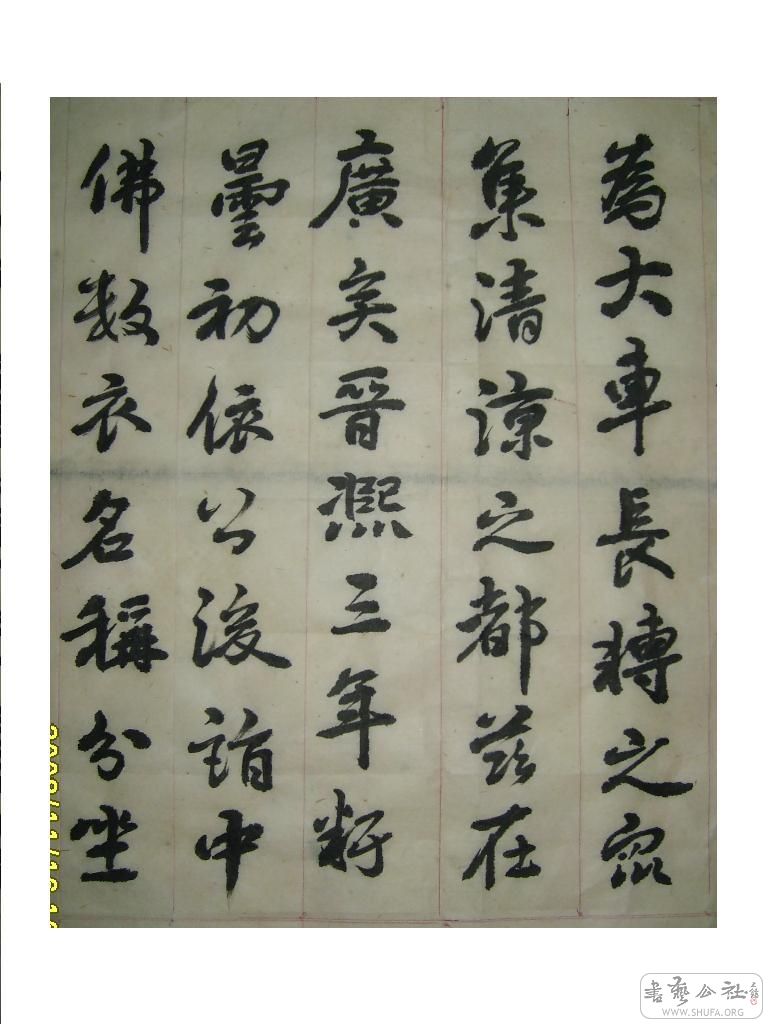 為大車長轉之眾
集清涼之都茲在
廣矣晉熙三年
曇初依公後詣中
佛數衣名稱分坐
書藝公社
WWW.SHUFA.ORG